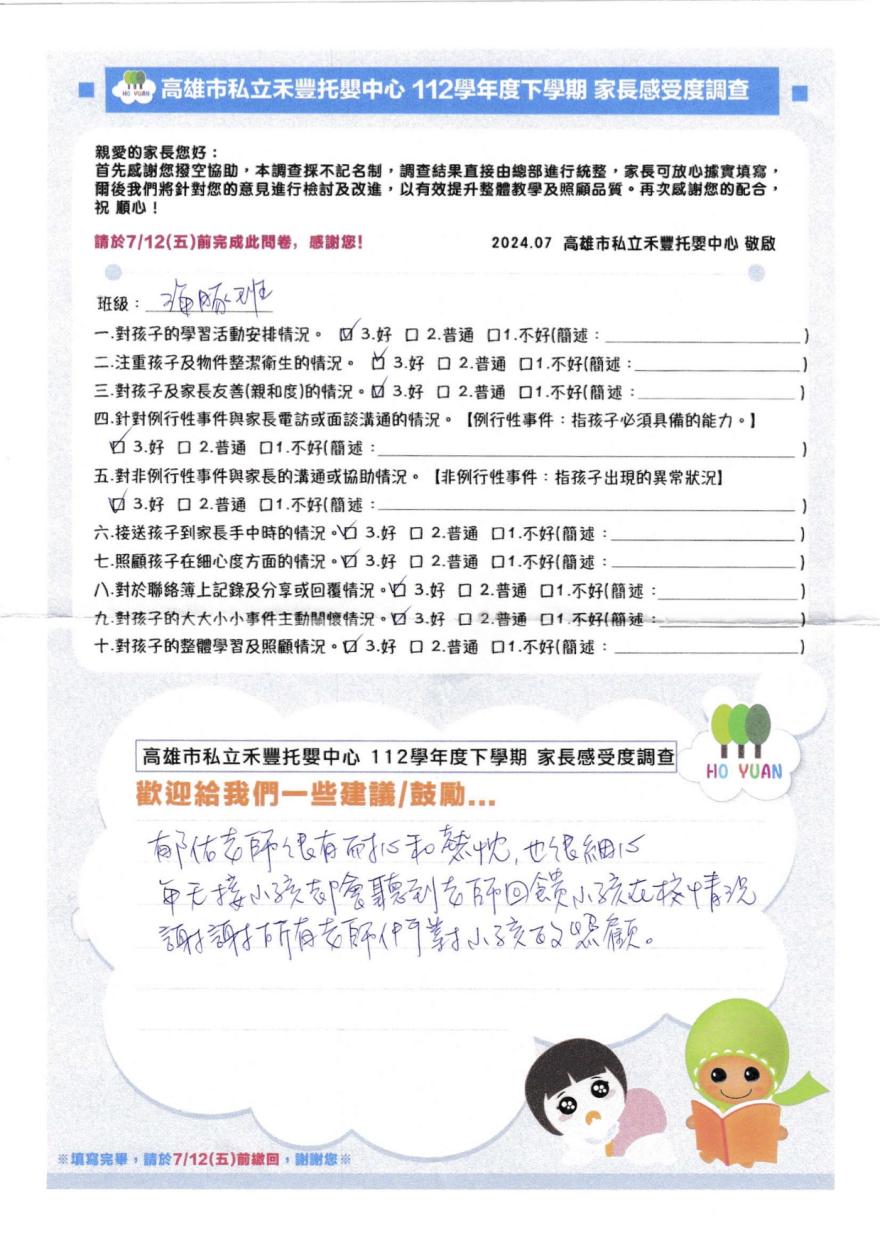 HO YUAN
高雄市私立禾豐托嬰中心 112學年度下學期 家長感受度調查
親愛的家長您好：
首先感謝您撥空協助，本調查採不記名制，調查結果直接由總部進行統整，家長可放心據實填寫，
爾後我們將針對您的意見進行檢討及改進，以有效提升整體教學及照顧品質。再次感謝您的配合，
祝 順心！
請於7/12(五)前完成此問卷，感謝您!
2024.07 高雄市私立禾豐托嬰中心 敬啟
班級：海豚班
一.對孩子的學習活動安排情況。 ☑ 3.好 □ 2.普通 □1.不好(簡述：__________)
二.注重孩子及物件整潔衛生的情況。 ☑ 3.好 □ 2.普通 □1.不好(簡述：__________)
三.對孩子及家長友善(親和度)的情況。☑ 3.好 □ 2.普通 □1.不好(簡述：__________)
四.針對例行性事件與家長電訪或面談溝通的情況。【例行性事件：指孩子必須具備的能力。】
☑ 3.好 □ 2.普通 □1.不好(簡述：__________)
五.對非例行性事件與家長的溝通或協助情況。【非例行性事件：指孩子出現的異常狀況】
☑ 3.好 □ 2.普通 □1.不好(簡述：__________)
六.接送孩子到家長手中時的情況。☑ 3.好 □ 2.普通 □1.不好(簡述：__________)
七.照顧孩子在細心度方面的情況。☑ 3.好 □ 2.普通 □1.不好(簡述：__________)
八.對於聯絡簿上記錄及分享或回覆情況。☑ 3.好 □ 2.普通 □1.不好(簡述：__________)
九.對孩子的大大小小事件主動關懷情況。☑ 3.好 □ 2.普通 □1.不好(簡述：__________)
十.對孩子的整體學習及照顧情況。☑ 3.好 □ 2.普通 □1.不好(簡述：__________)
高雄市私立禾豐托嬰中心 112學年度下學期 家長感受度調查
HO YUAN
歡迎給我們一些建議/鼓勵...
郁佑老師很有耐心和熱忱，也很細心
每天接小孩都會聽到老師回饋小孩在校情況
謝謝所有老師們對小孩的照顧。
※填寫完畢，請於7/12(五)前繳回，謝謝您※